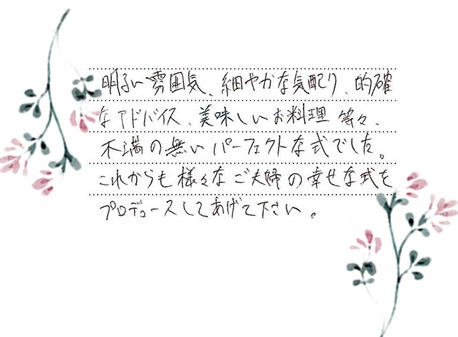 明るい雰囲気、細やかな気配り、的確
なアドバイス、美味しいお料理 等々、
不満の無いパーフェクトな式でした。
これからも様々なご夫婦の幸せな式を
プロデュースしてあげて下さい。